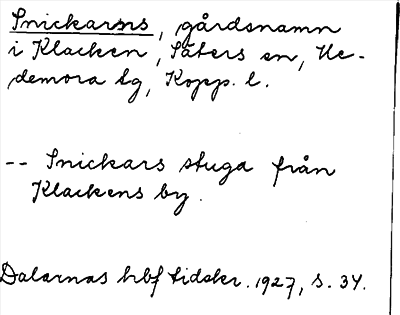 Snickarns, gårdsnamn
i Klacken, Säters sn, He-
demora tg, Kopp. l.
-- Snickars stuga från
Klackens by.
Dalarnas hbf tidskr. 1927, s. 34.